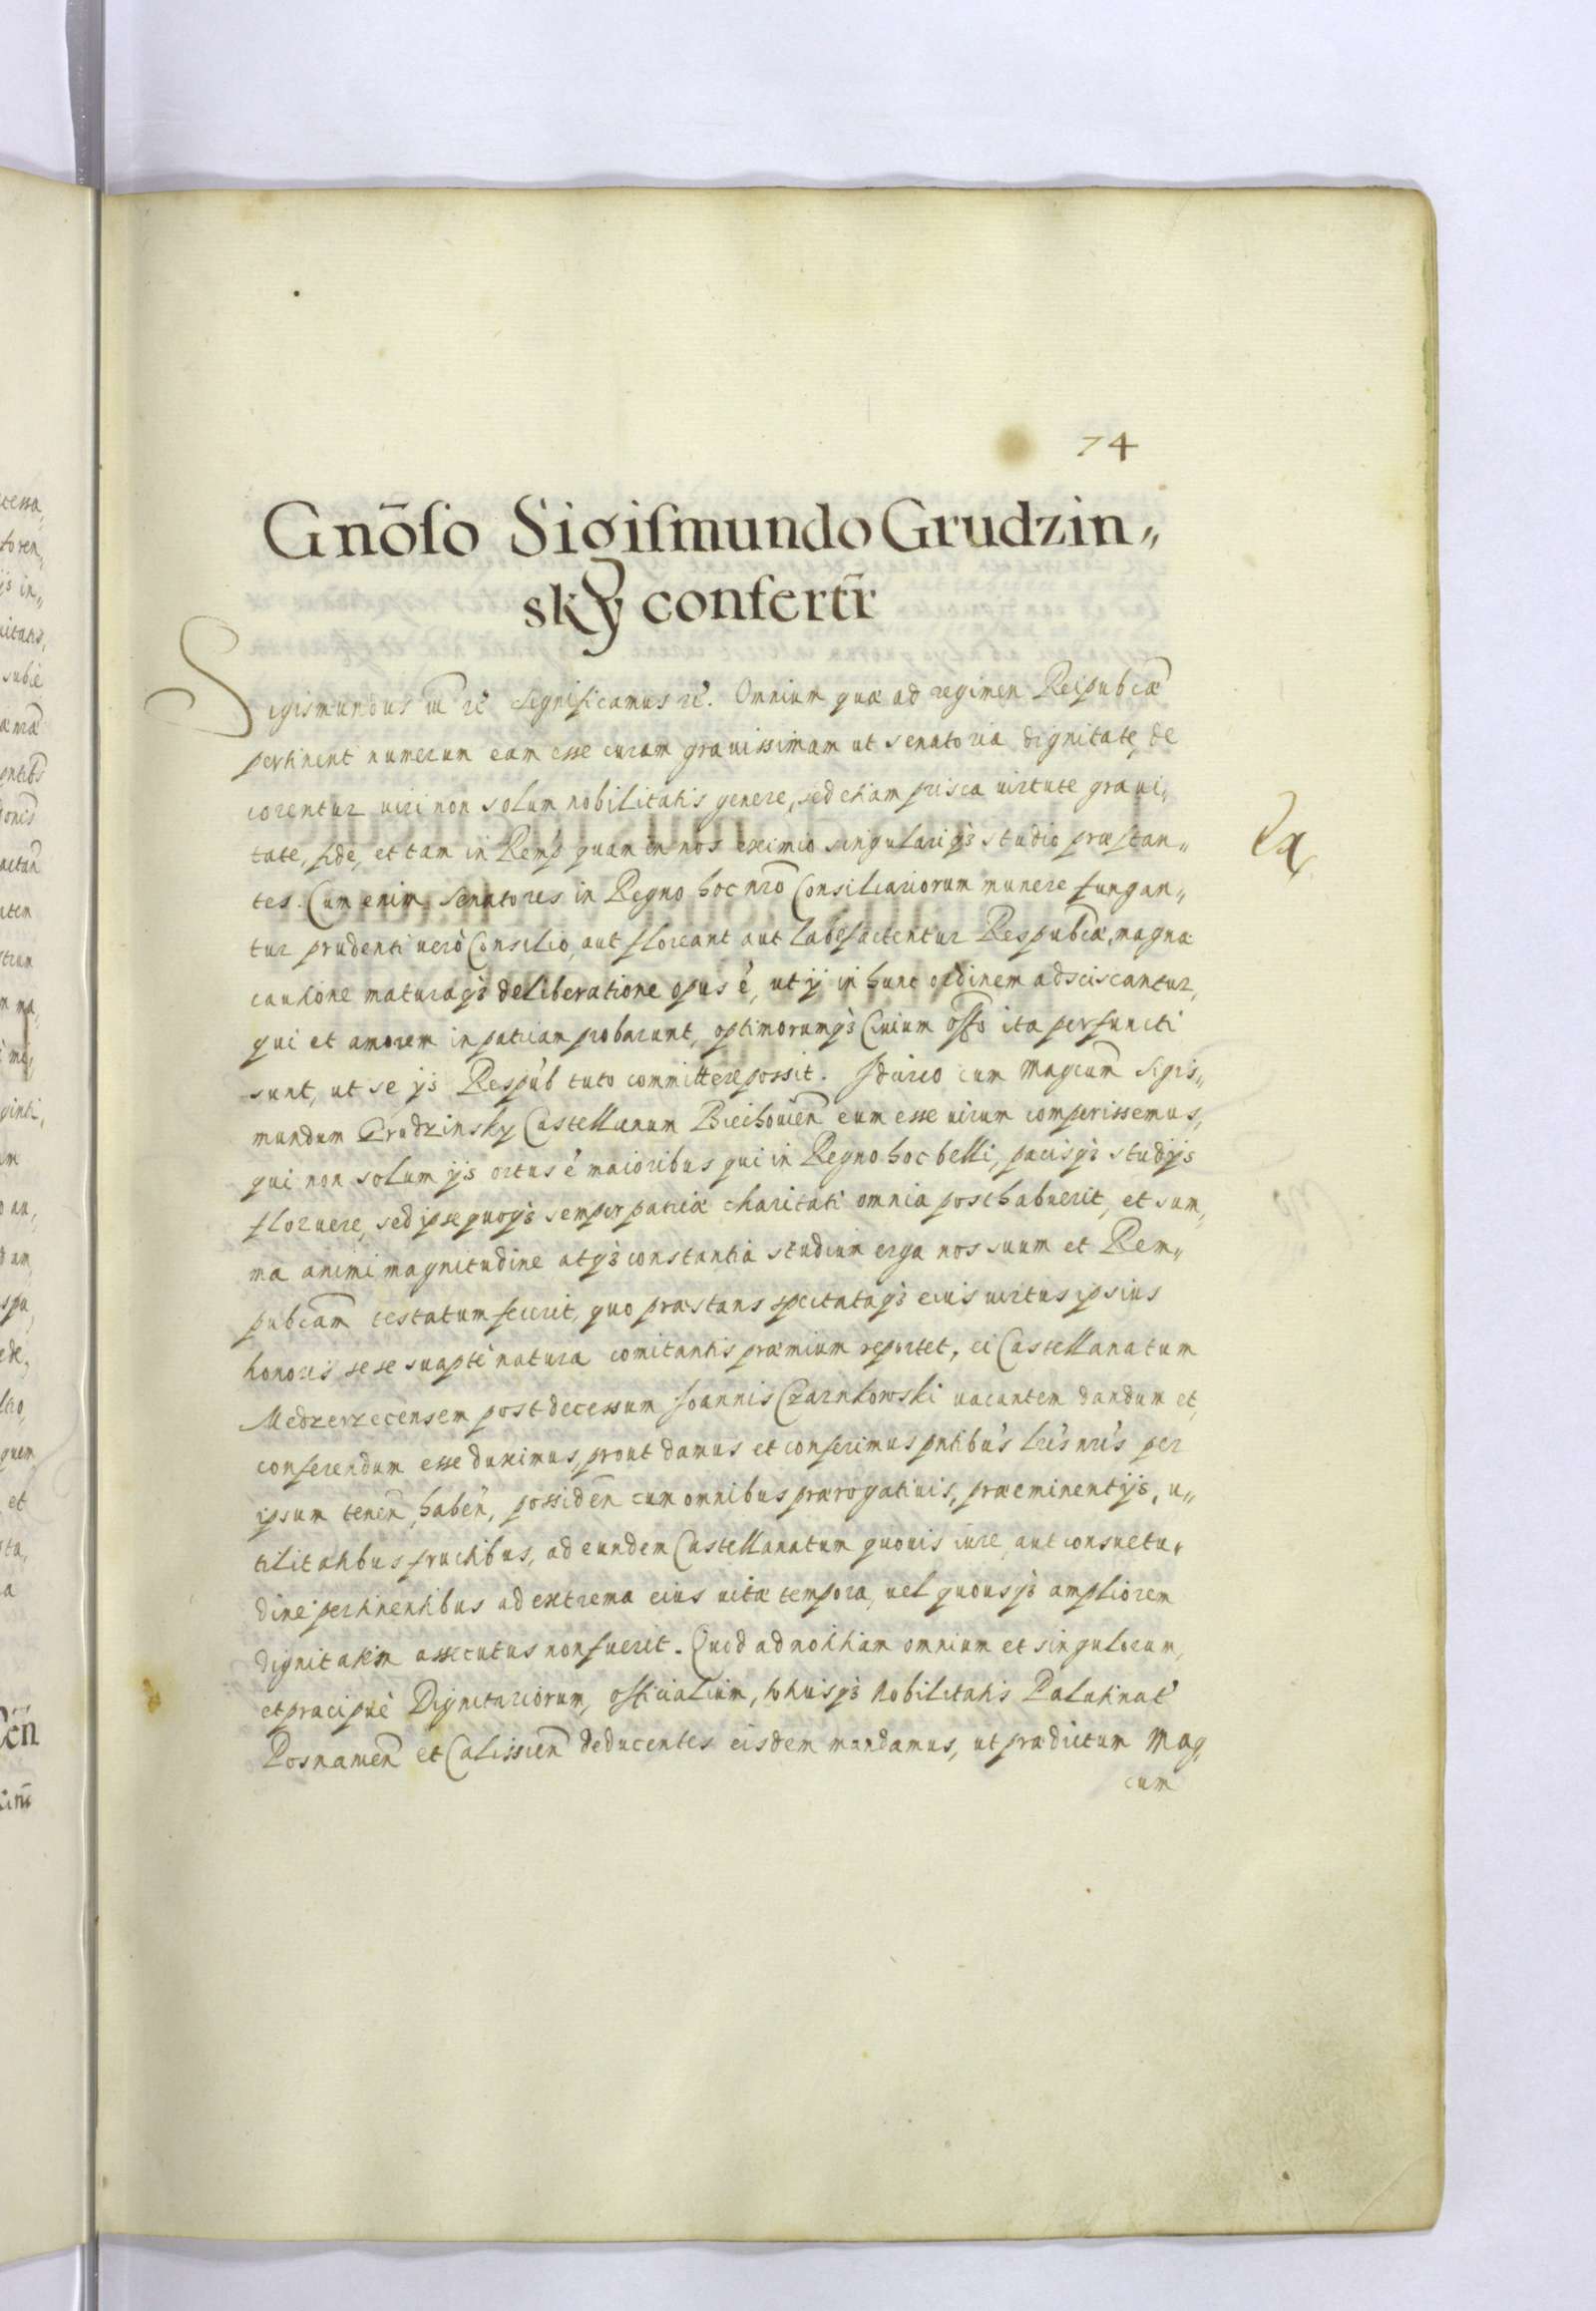 74
Gnōso Sigismundo Grudzin„
sky confertr̄
Sigismundus iii rē significamus rē. Omnium quæ ad regimen Reipubcæ
pertinent numerum eam esse curam grauissimam ut senatoria dignitate, de
corentur uiri non solum nobilitatis generе, sed etiam prisca uirtute graui„
tate, fide, et tam in Remp quam in nos eximio singulariq3 studio præstan„
tes. Cum enim senatores in Regno hoc nrō Consiliariorum munere fungan„
tur prudenti uerò Consilio, aut floreant aut labefactentur Respubcæ, magna
cautione maturaq3 deliberatione opus ē, ut ij in hunc ordinem adsciscantur,
qui et amorem in patriam probarunt, optimorumq3 Ciuium offō ita perfuncti
sunt, ut se ijs Respub tuto committere possit. Idcirco cum Magcum Sigis„
mundum Grudzinsky Castellanum Biechouien eum esse uirum comperissemus,
qui non solum ijs ortus è maioribus qui in Regno hoc belli, pacisq3 studijs
floruere, sed ipse quoq3 semper patriæ charitati omnia posthabuerit, et sum„
ma animi magnitudine atq3 constantia studium erga nos suum et Rem„
pubcam testatum fecerit, quo præstans spectataq3 eius uirtus ipsius
honoris sese suaptè natura comitantis præmium reportet, ei Castellanatum
Medzerzecensem post decessum Joannis Czarnkowski uacantem dandum et
conferendum esse duximus, prout damus et conferimus pntibus lris nris per
ipsum tenen̄, haben̄, possiden̄ cum omnibus prærogatiuis, præeminentijs, u„
tilitatibus fructibus, ad eundem Castellanatum quouis iure, aut consuetu„
dine pertinentibus ad extrema eius uitæ tempora, uel quousq3 ampliorem
dignitatem assecutus non fuerit. Quod ad notitiam omnium et singulorum,
et præcipuè Dignitariorum, officialium, totiusq3 Nobilitatis Palatinat
Posnamen̄ et Calissien̄ deducentes eisdem mandamus, ut prædictum Mag„
cum